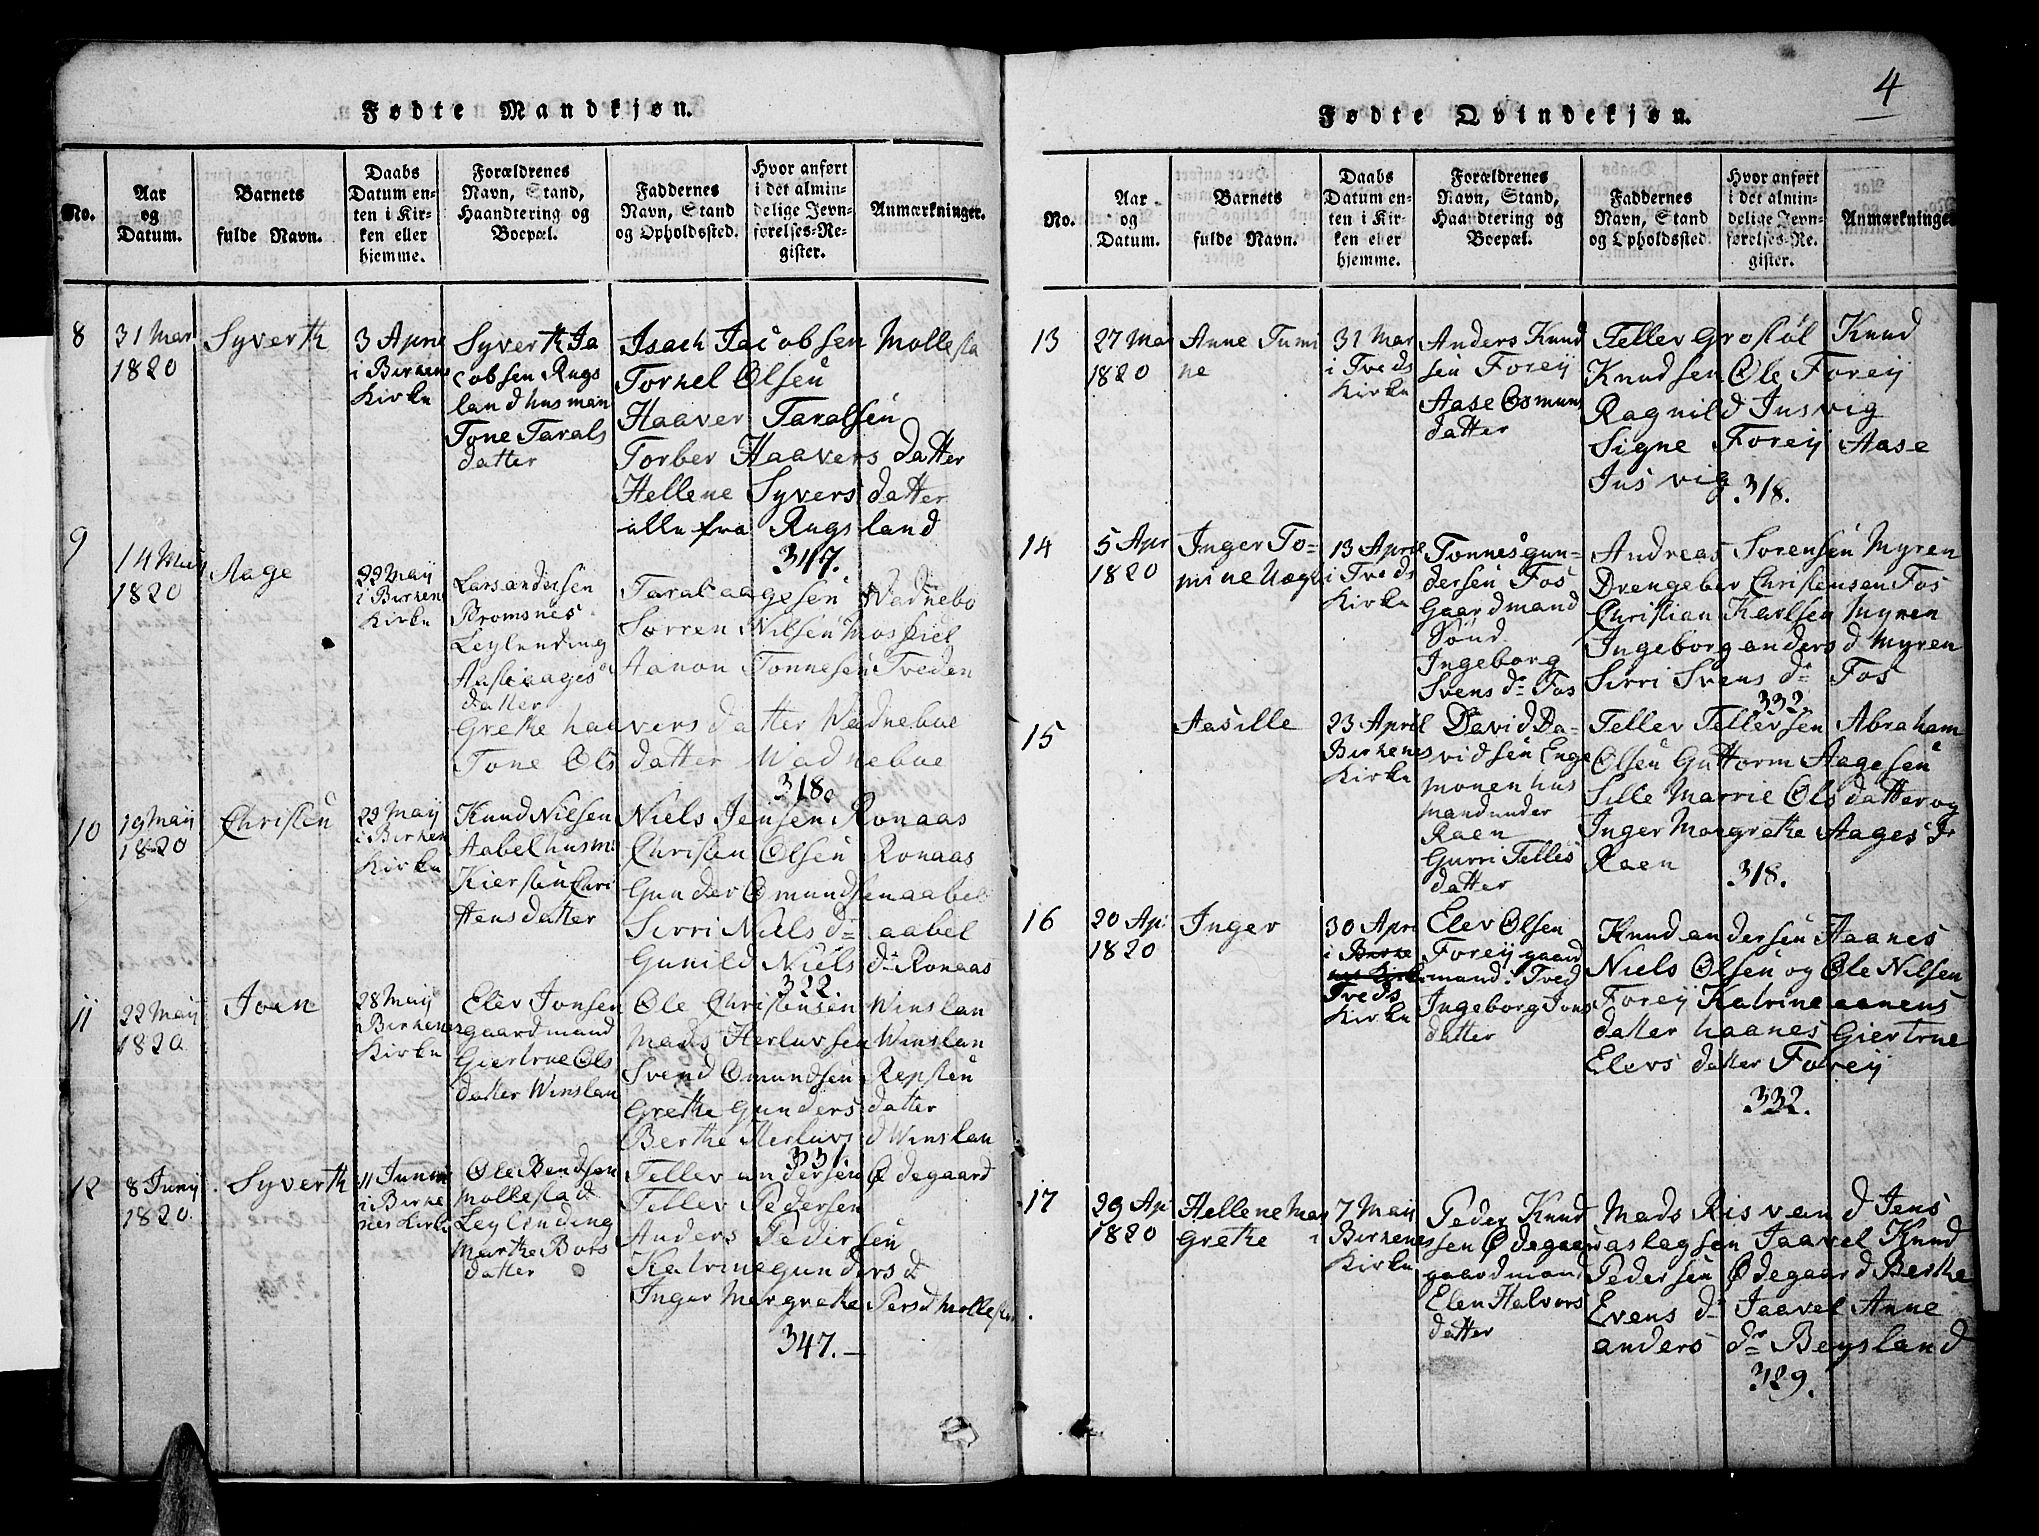 Fødte Mandkjøn.
No.
Aar
og
Datum.
Barnets
fulde Navn.
Daabs
Datum en-
ten i Kir-
ken eller
hjemme.
Forældrenes
Navn, Stand,
Haandtering og
Boepæl.
Faddernes
Navn, Stand
og Opholdssted.
Hvor anført
i det almin-
delige Jevn-
førelses-Re-
gister.
Anmærkninger.
8
31 Mar
1820
Syverth
3 April
i Birkenes
Kirke
Syverth Ja
cobsen Rugs
land husman
Tone Tarals
datter
Isach Jacobsen Mollesta
Torkel Olsen
Haaver Taralsen
Torber Haavers datter
Hellene Syvers datter
alle fra Rugsland
347.
9
14 Maij
1820
Aage
22 Maij
i Birkens
Kirke
Lars andersen
Bromsnes
Leylending
Aasti aages
datter
Taral aagesen Wadnebo
Sørren Nilsen Mospiel
Aanon Tonnesen Tveden
Grethe haavers datter Wadneboe
Tone Ols datter Wadneboe
318.
10
19 Maij
1820
Christen
22 Maij
i Birken
Kirke
Knud Nielsen
Aabel husm.
Kiersten Chri
stens datter
Niels Jensen Ronaas
Christen Olsen Ronaas
Gunder Omundsen aabel
Sirri Niels d aabel
Gunild Niels d Ronaas
322
11
22 Maij
1820
Joen
28 Maij
i Birkenes
Kirke
Elev Jonsen
gaardmand
Giertrue Ols
datter Winslan
Ole Christensen Winslan
Mads Herluvsen Winslan
Svend Omundsen Repsten
Grethe Gunders datter
Berthe Herluvs d Winslan
331.
12
8 Junij
1820
Syverth
11 Junii
i Birke
nes Kirke
Ole Bendsen
Mollestad
Leylending
Marthe Bors
datter
Tellev andersen Ødegaard
Tellev Pedersen
Anders Pedersen
Katrine gunders d
Inger Mergrethe Pers d Mollesta
347.
4
Fødte Qvindekjøn.
No.
Aar
og
Datum.
Barnets
fulde Navn.
Daabs
Datum en-
ten i Kir-
ken eller
hjemme.
Forældrenes
Navn, Stand,
Haandtering og
Boepæl.
Faddernes
Navn, Stand
og Opholdssted.
Hvor anført
i det almin-
delige Jevn-
førelses-Re-
gister.
Anmærkninger
13
27 Mar
1820
Anne Tumi
ne
31 Mar
i Tveds
Kirke
Anders Knud
sen Foreij
Aase Osmuns
datter
Tellev Grostøl Knud
Knudsen Ole Foreij
Ragnild Jusvig
Signe Foreij Aase
Jusvig
318.
14
5 Apr
1820
Inger To-
13 April
i Tveds
Kirke
Tonnes gun-
dersen Fos
Gaardmand
Ingeborg
Svens d Fos
Andreas Sorensen Myren
Drengeber Christensen Fos
Christian Karlsen Myren
Ingeborg anders d Myren
Sirri Svens d Fos
332.
15
Aasille
23 April
Birkenes
Kirke
David Da-
vidsen Enge
monen hus
mand under
Raen
Gurri Telles
datter
Tellev Tellevsen Abraham
Olsen Guttorm Aagesen
Sille Marrie Ols datter og
Inger Margrethe Aages dr
Raen
318.
16
20 Apr.
1820
Inger
30 Apri
i Birke
nes Kirke
Tveds
Kirke
Elev Olsen
Foreij gaard
mand i Tved
Ingeborg Jons
datter
Knud andersen Haanes
Niels Olsen og Ole Nilsen
Foreij Katrine aanens
datter haanes Giertrue
Elevs datter Foreij
332.
17
29 Ap
1820
Hellene Mar
grethe
7 Maij
i Birkenes
Kirke
Peder Knud
sen Ødegaard
gaardmand
Elen Halvors
datter
Mads Risvand Jens
aslagsen Jaavel Knud
Pedersen Ødegaard Berthe
Evens d Jaavel Anne
anders dr Beysland
329.